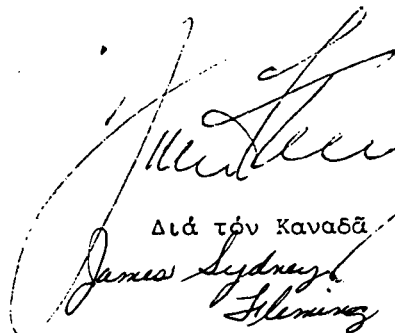 Διά τόν Καναδᾶ
James Sydney
Fleming